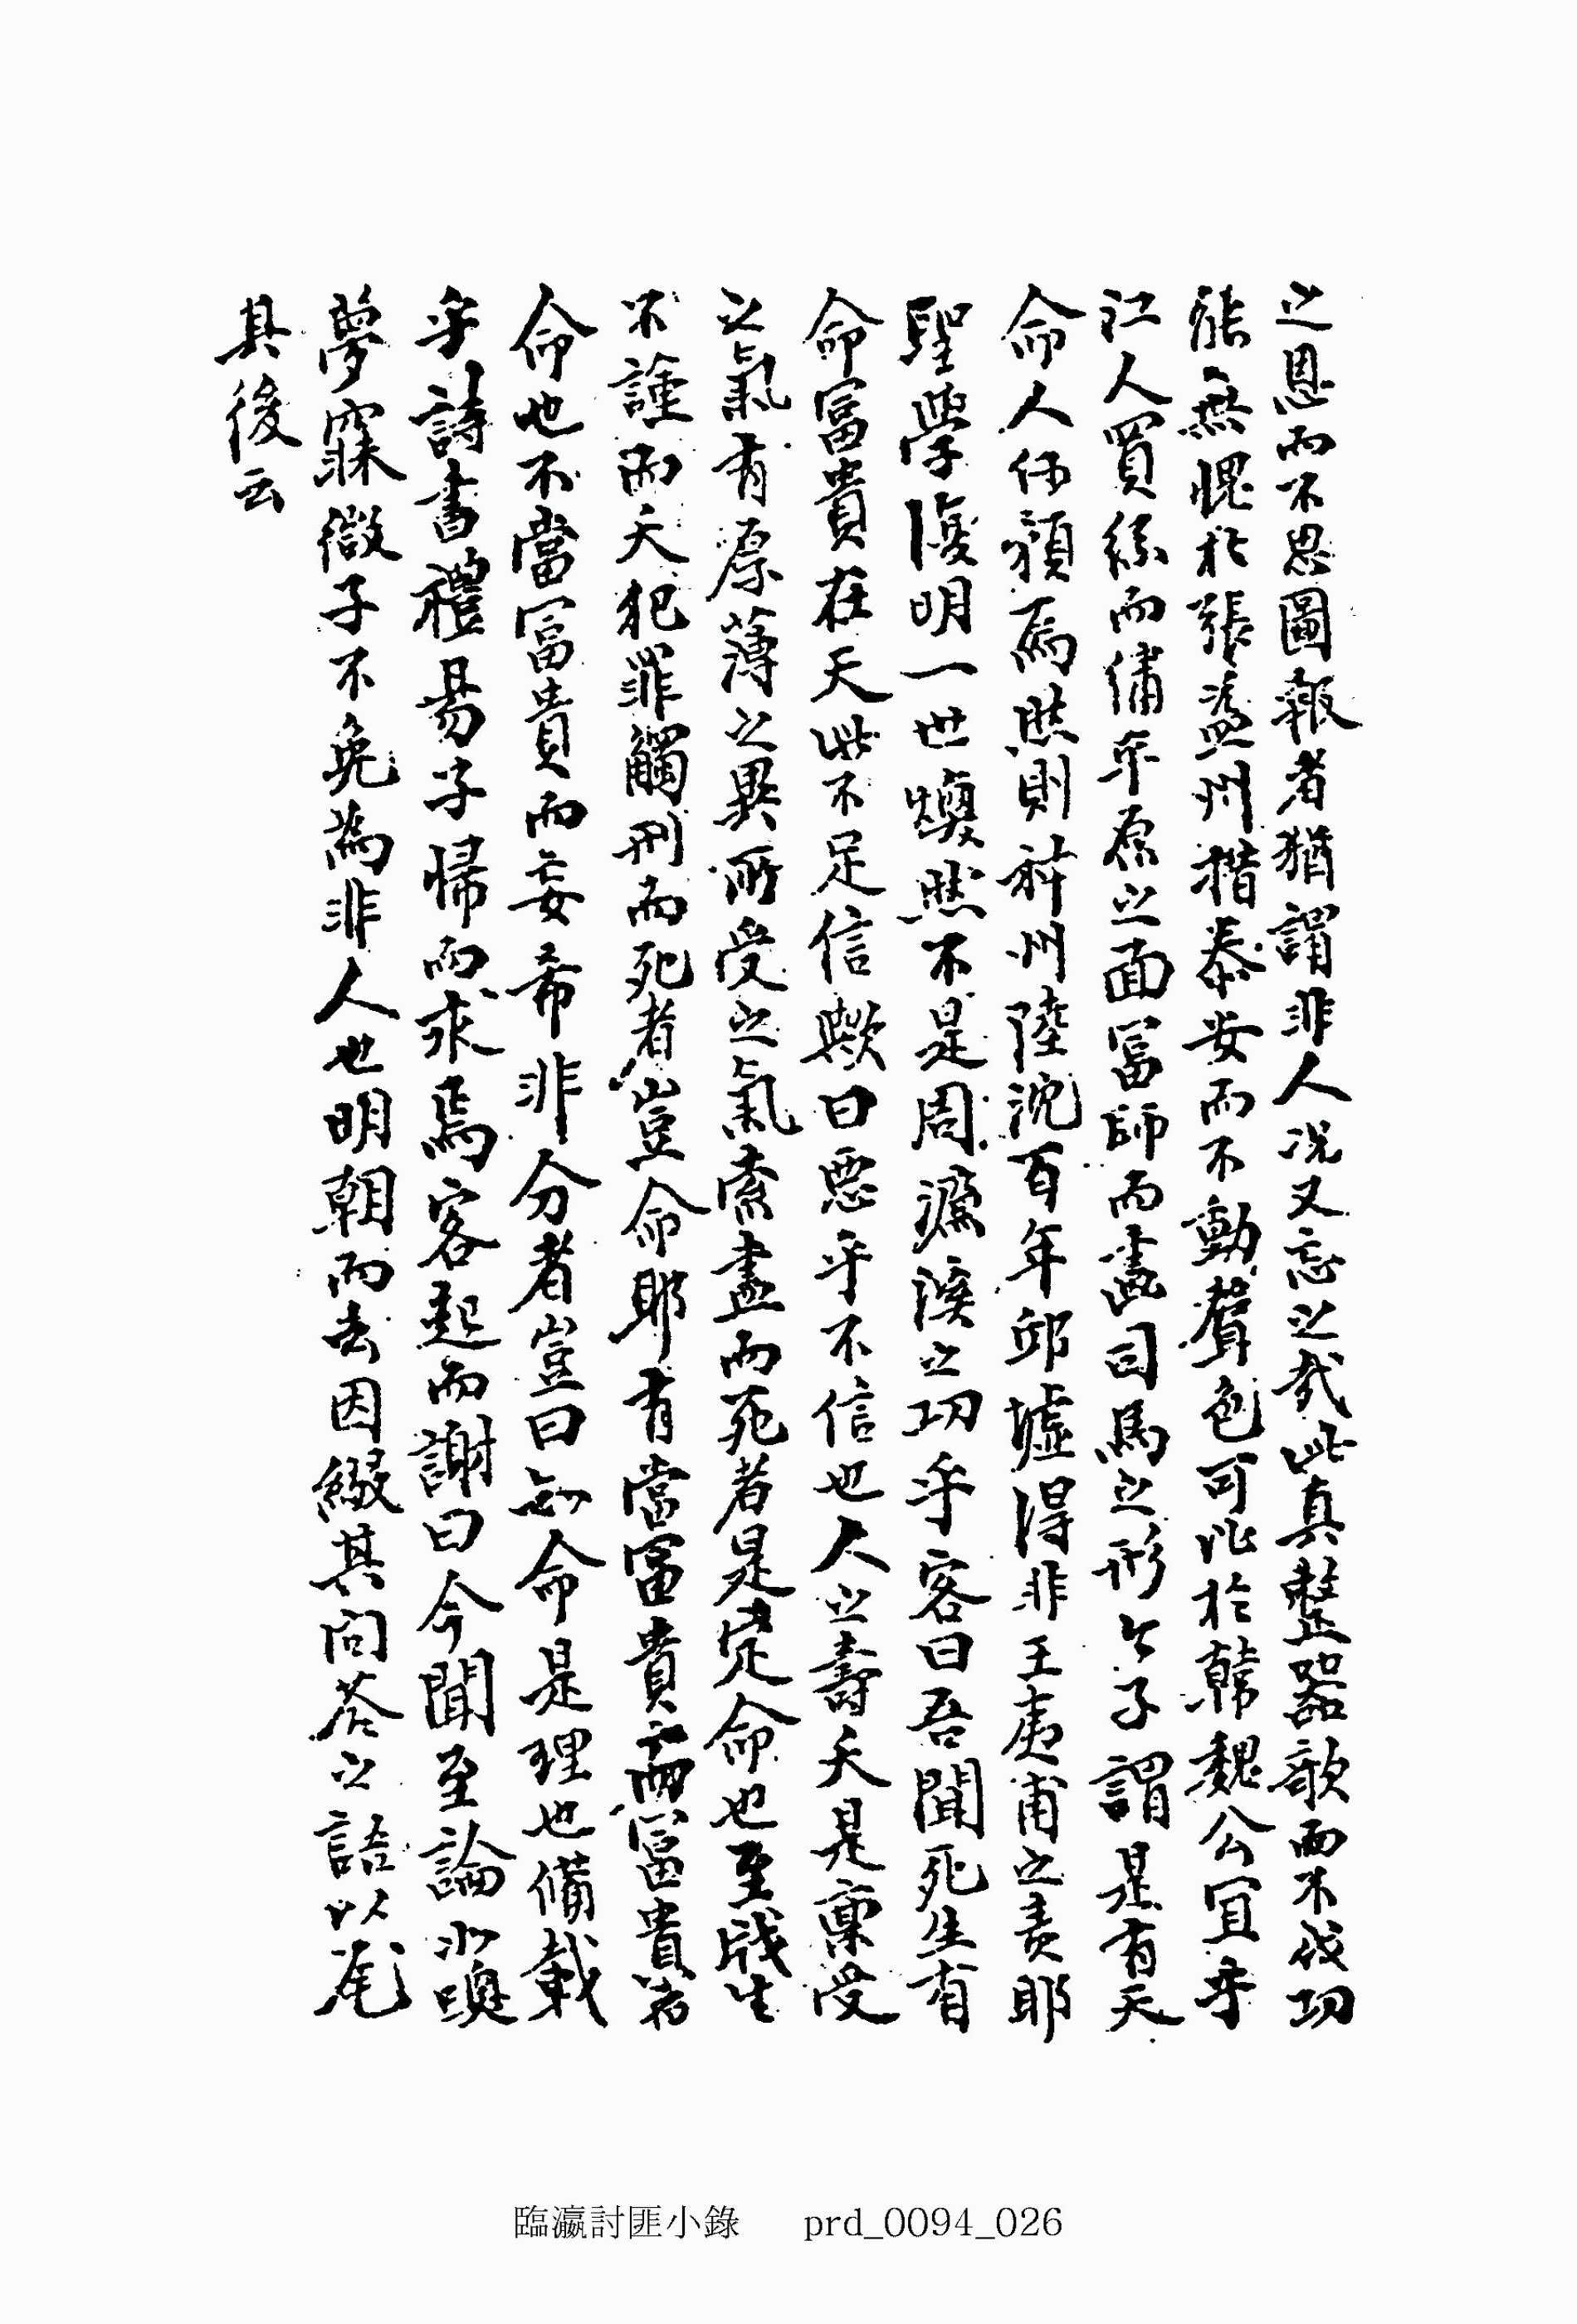 之恩而不思圖報者猶謂非人况又忘之哉此真整器欹而不伐功
能無愧於張益州措泰安而不動聲色可比於韓魏公宜乎
江人買絲而繡平原之面冨師而畵司馬之形公子謂是有天
命人何預焉然則神州陸沈百年邱墟得非王夷甫之責耶
聖學復明一世煥然不是周濂溪之功乎客曰吾聞死生有
命冨貴在天此不足信歟曰惡乎不信也人之壽夭是稟受
之氣有厚薄之異所受之氣索盡而死者是定命也至戕生
不謹而夭犯罪觸刑而死者豈命耶有當冨貴而冨貴者
命也不當冨貴而妄希非分者豈曰知命是理也備載
乎詩書禮易子歸而求焉客起而謝曰今聞至論必喚
夢寐微子不免為非人也明朝而去因綴其問答之語以尾
其後云
臨瀛討匪小錄 prd_0094_026